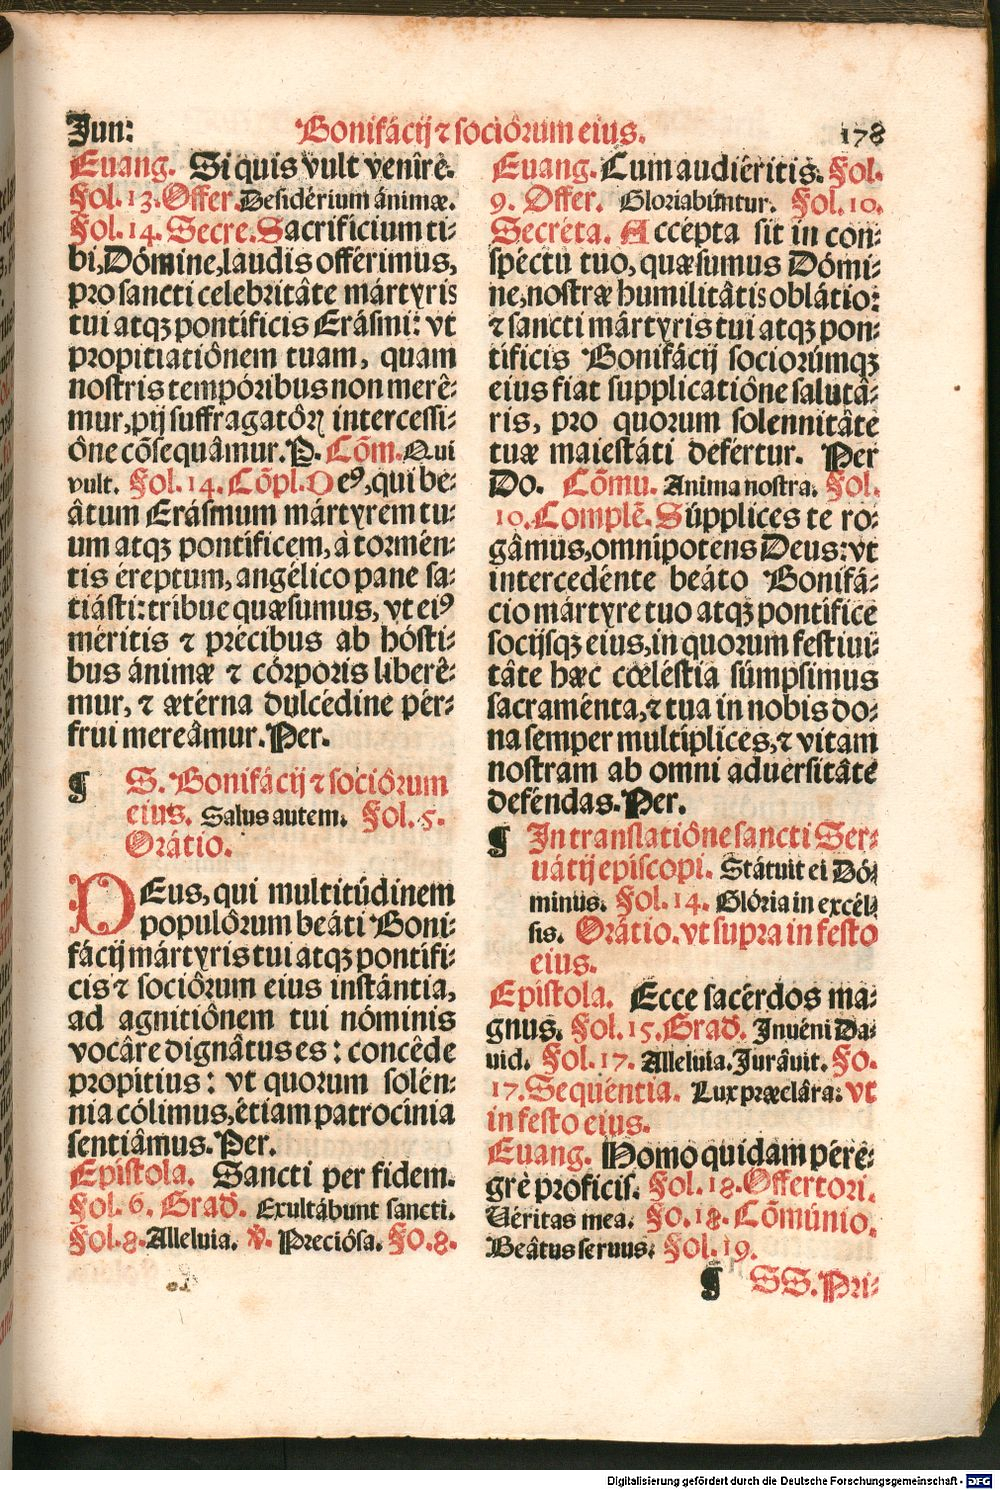 Jun: Bonifácij ⁊ sociôrum eius. 178
Euang. Si quis vult venîre.
Fol. 13. Offer. Desidérium ánimæ.
Fol. 14. Secre. Sacrificium ti-
bi, Dómine, laudis offérimus,
pro sancti celebritâte mártyris
tui atqꝫ pontificis Erásmi: vt
propitiatiônem tuam, quam
nostris tempóribus non merê-
mur, pij suffragatôrꝝ intercessi-
ône cõsequâmur. P. Cõm. Qui
vult. Fol. 14. Cõpl. Deꝰ, qui be-
âtum Erásmum mártyrem tu-
um atqꝫ pontíficem, à tormén-
tis éreptum, angélico pane sa-
tiásti: tríbue quæsumus, vt eiꝰ
méritis ⁊ précibus ab hósti-
bus ánimæ ⁊ córporis liberê-
mur, ⁊ ætérna dulcédine pér-
frui mereâmur. Per.
¶ S. Bonifácij ⁊ sociôrum
eius. Salus autem. Fol. 5.
Orátio.
DEus, qui multitúdinem
populôrum beáti Boni-
fácij mártyris tui atqꝫ pontífi-
cis ⁊ sociôrum eius instántia,
ad agnitiônem tui nóminis
vocâre dignâtus es: concêde
propitius: vt quorum solén-
nia cólimus, étiam patrocínia
sentiâmus. Per.
Epístola. Sancti per fidem.
Fol. 6. Grad̃. Exultábunt sancti.
Fol. 8. Alleluia. ℣. Preciósa. Fo. 8.
Euang. Cum audiéritis. Fol.
9. Offer. Gloriabúntur. Fol. 10.
Secréta. Accépta sit in con-
spéctu tuo, quæsumus Dómi-
ne, nostræ humilitâtis oblátio:
⁊ sancti mártyris tui atqꝫ pon-
tificis Bonifácij sociorúmqꝫ
eius fiat supplicatiône salutâ-
ris, pro quorum solennitâte
tuæ maiestáti defértur. Per
Do. Cõmu. Anima nostra. Fol.
10. Complẽ. Súpplices te ro-
gâmus, omnípotens Deus: vt
intercedénte beáto Bonifá-
cio mártyre tuo atqꝫ pontífice
socijsqꝫ eius, in quorum festiui-
tâte hæc cœléstia súmpsimus
sacraménta, ⁊ tua in nobis do-
na semper multíplices, ⁊ vitam
nostram ab omni aduersitâte
deféndas. Per.
¶ In translatiône sancti Ser-
uátij episcopi. Státuit ei Dó-
minus. Fol. 14. Glória in excél-
sis. Orátio. vt supra in festo
eius.
Epistola. Ecce sacérdos ma-
gnus. Fol. 15. Grad̃. Inuéni Da-
uid. Fol. 17. Alleluia. Jurâuit. Fo.
17. Sequéntia. Lux præclâra: vt
in festo eius.
Euang. Homo quidam péré-
grè proficis. Fol. 18. Offertori.
Véritas mea. Fo. 18. Cõmúnio.
Beâtus seruus. Fol. 19.
¶ SS. Pri-
Digitalisierung gefördert durch die Deutsche Forschungsgemeinschaft - DFG